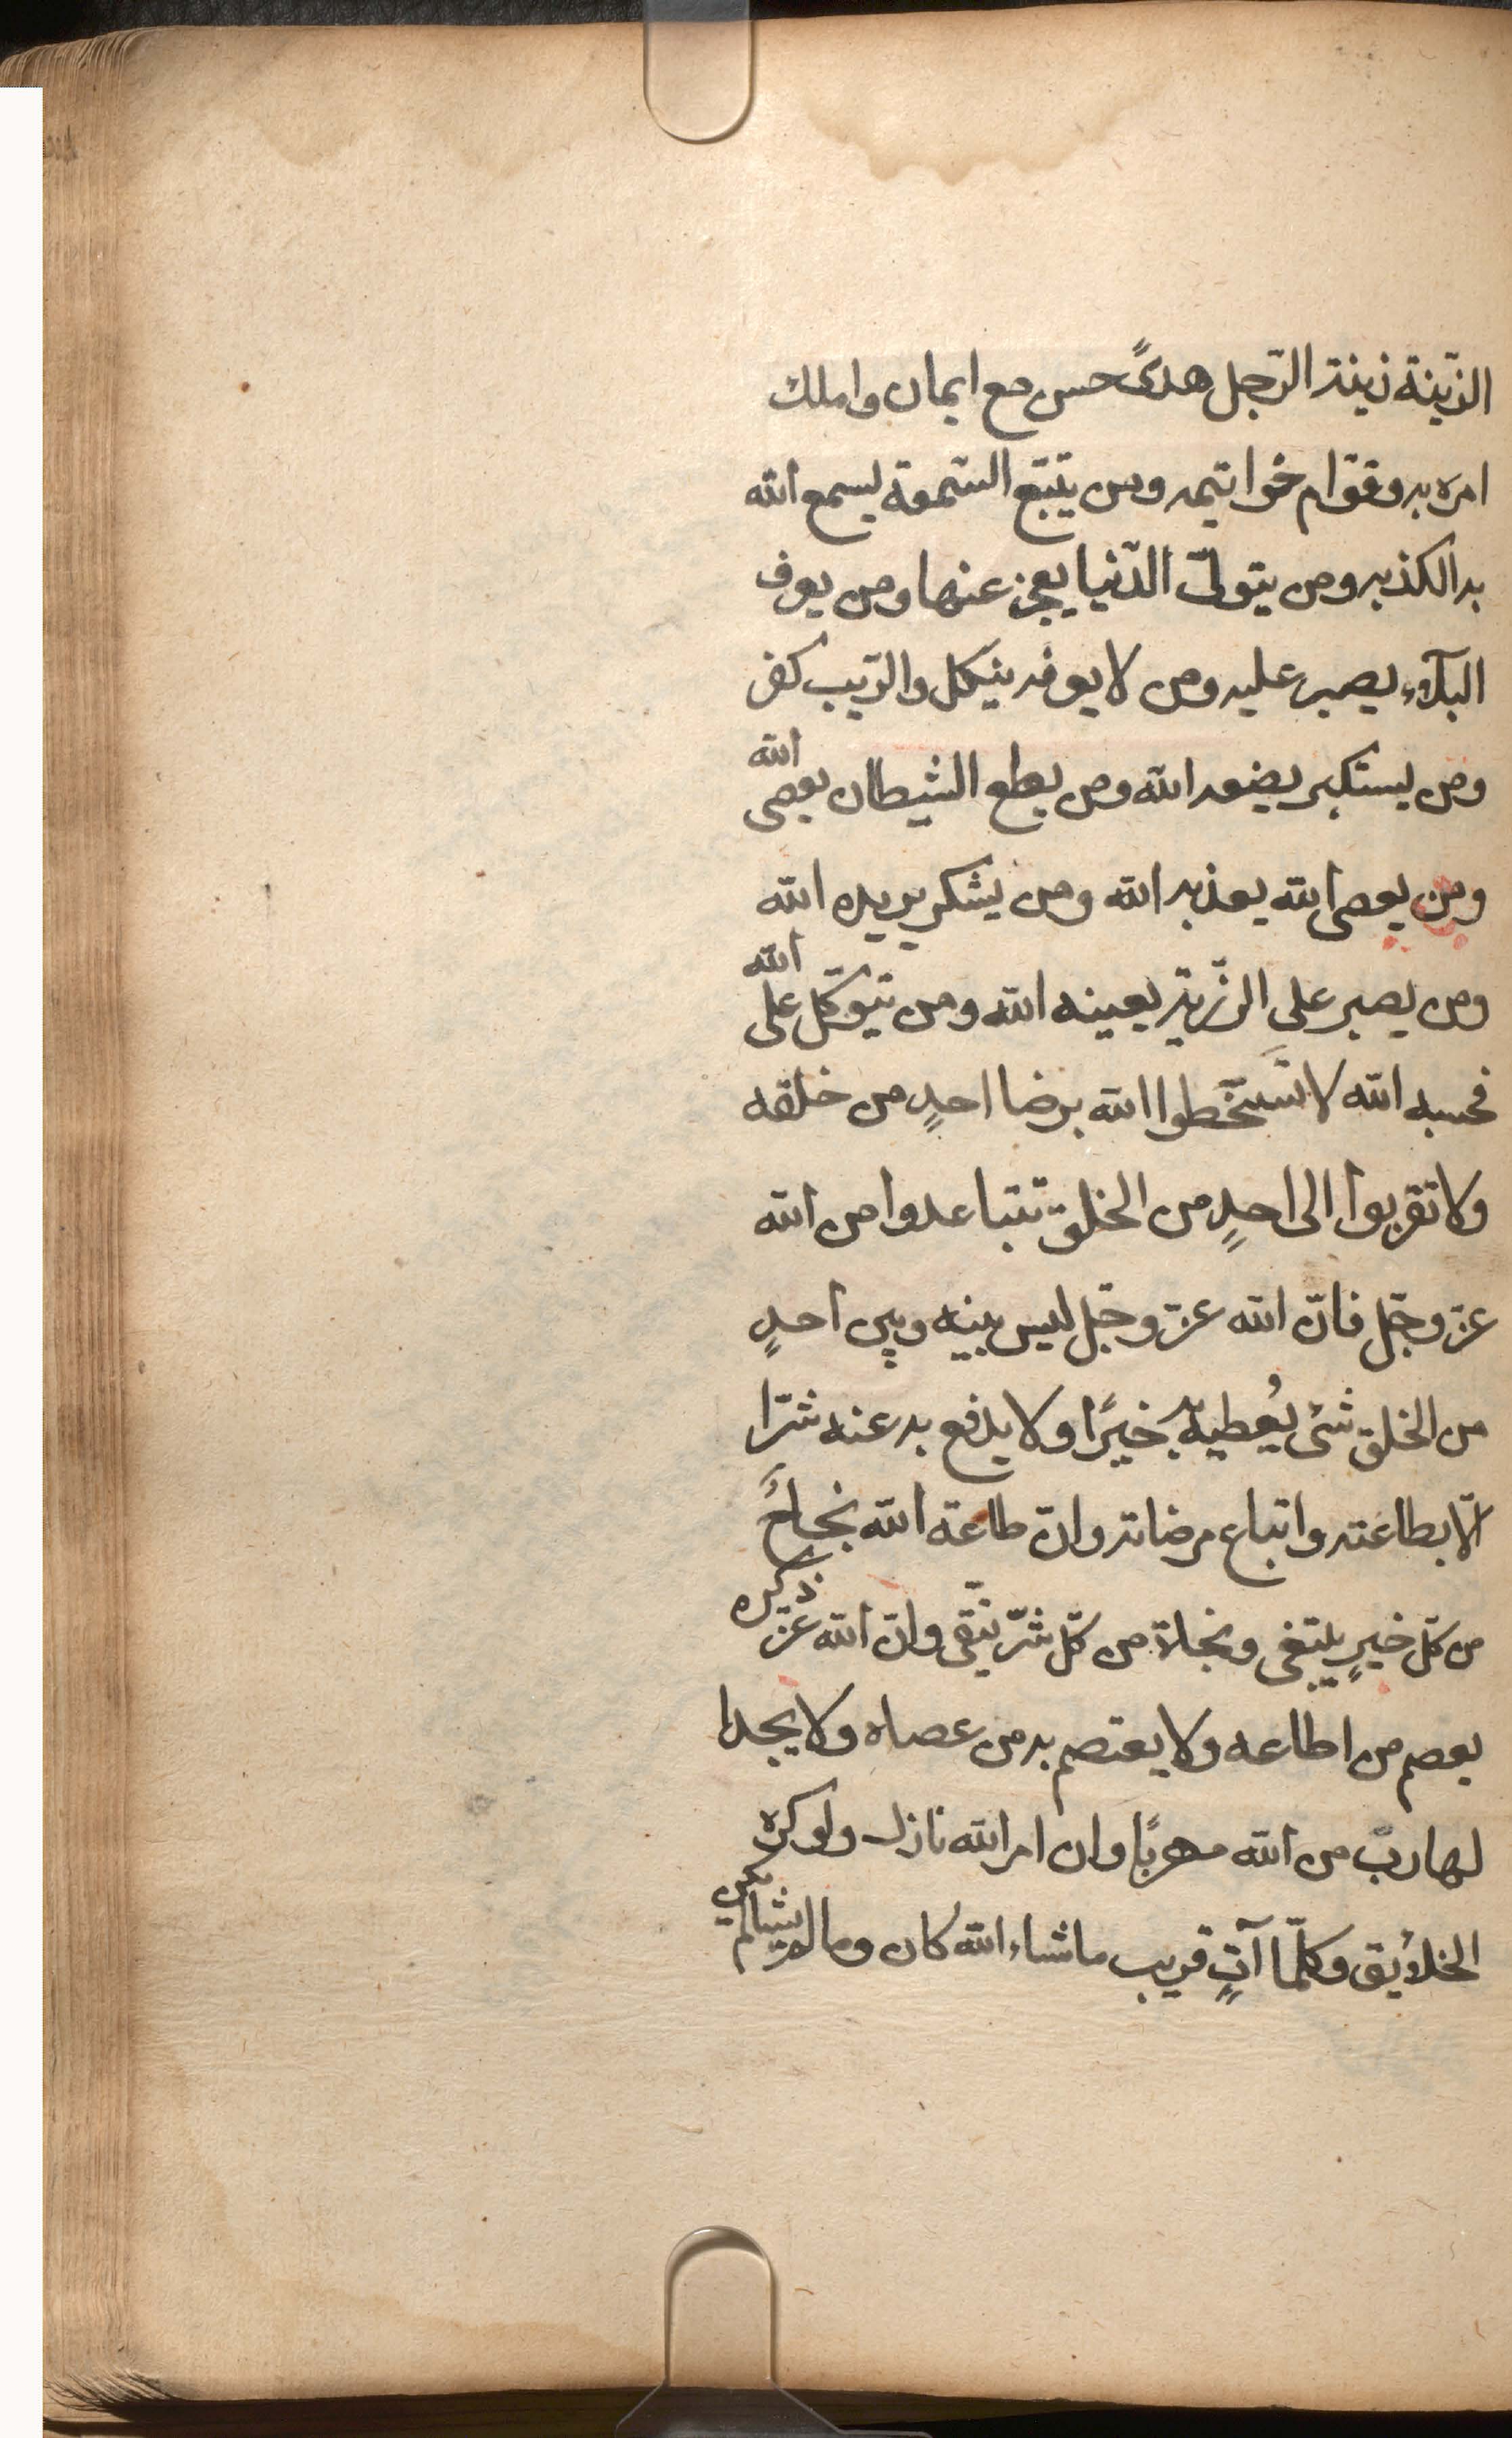 الزّينة زينة الرّجل هدىً حسن مع ايمان واملك
امره به وقوام خواتيمه ومن يتبع السّمعة يسمع الله
به الكذبه ومن يتولّى الدّنيا يعجز عنها ومن يعرف
البلآء يصبر عليه ومن لا يعرفه ينكل والرّيب كفر
ومن يستكبر يضعه الله ومن يطع الشيطان يعصى الله
ومن يعصى الله يعذبه الله ومن يشكر يزيده الله
ومن يصبر على الرّزية يعينه الله ومن يتوكّل على الله
فحسبه الله لا تسَتخّطوا الله برضا احدٍ من خلقه
ولا تقربوا الى احدٍ من الخلق تتباعدوا من الله
عزّ وجّل فانّ الله عزّ وجّل ليس بينه وبين احدٍ
من الخلق شئ يُعطيه به خيرًا ولا يدفع به عنه شرّا
الّا بطاعته واتباع مرضاته وانّ طاعة الله نجاحً
من كلّ خيرٍ يبتغى ونجاة من كلّ شرّ يتّقى وانّ الله عزّ ذكره
يعصم من اطاعه ولا يعتصم به من عصاه ولا يجدا
لهاربٌ من الله مهربًا وان امر الله نازل ولو كره
الخلائق وكلّما آتٍ قريب ما شاء الله كان وما لم يشا لم يكن